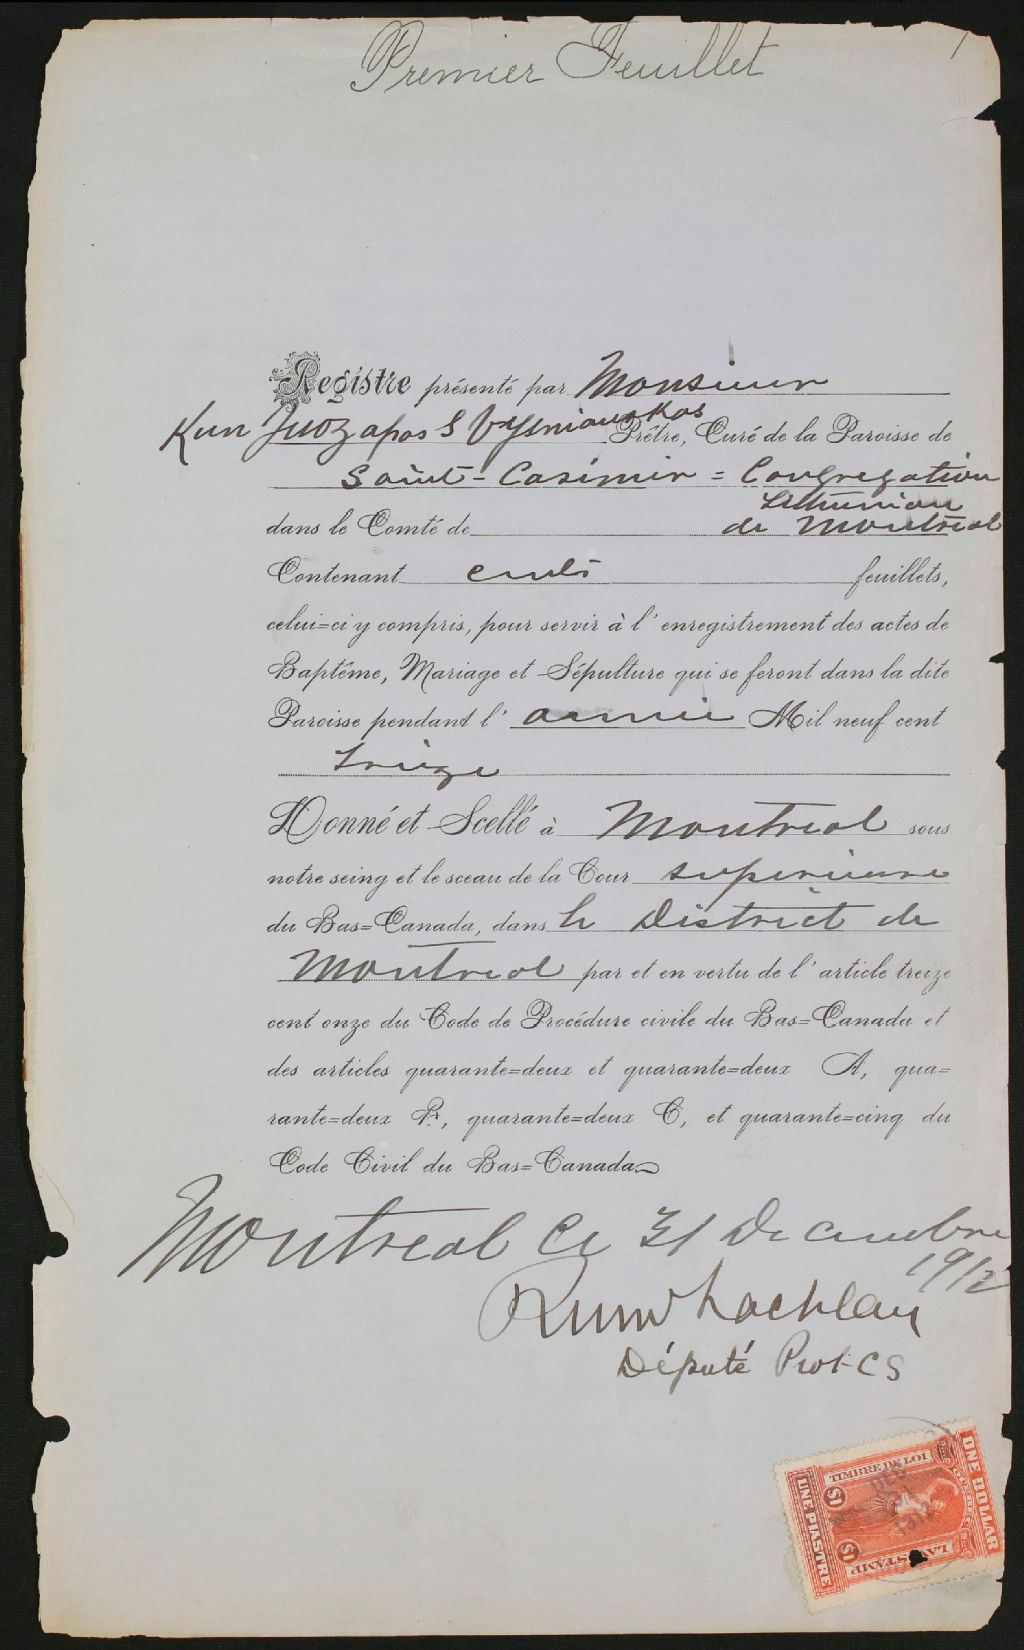 Premier Feuillet
1
Registre présenté par Monsieur
Kun Juozapas S Vyšniauskas Prêtre, Curé de la Paroisse de
Saint-Casimir = Congregation
Lithunian
dans le Comté de de Montréal
Contenant feuillets,
celui=ci y compris, pour servir à l'enregistrement des actes de
Baptême, Mariage et Sépulture qui se feront dans la dite
Paroisse pendant l'année Mil neuf cent
treize
Donné et Scellé à Montreal sous
notre seing et le sceau de la Cour superieure
du Bas=Canada, dans le District de
Montreal par et en vertu de l'article treize
cent onze du Code de Procédure civile du Bas=Canada et
des articles quarante=deux et quarante=deux A, qua=
rante=deux B, quarante=deux C, et quarante=cinq du
Code Civil du Bas=Canada.
Montreal Ce 31 Decembre
1912
Lachlan
Député Prot-CS
ONE DOLLAR
QUEBEC
TIMBRE DE LOI
$1
DEC
1912
$1
LAW STAMP
UNE PIASTRE